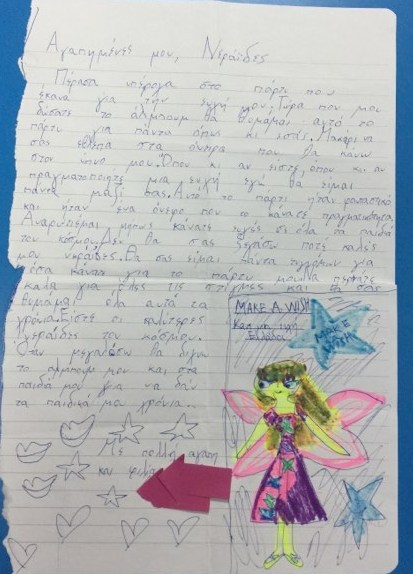 Αγαπημένες μου, Νεράιδες
Πέρασα υπέροχα στο πάρτι που
έκανα για την ευχή μου. Τώρα που μου
δώσατε το άλμπουμ θα θυμάμαι αυτό το
πάρτυ για πάντα όπως κι εσάς. Μακάρι να
σας έβλεπα στα όνειρα που θα κάνω
στον ύπνο μου. Όπου και αν είστε, όπου κι αν
πραγματοποιήτε μια ευχή εγώ θα είμαι
πάντα μαζί σας. Αυτό το πάρτι ήταν φανταστικό
και ήταν ένα όνειρο που το κάνατε πραγματικότητα.
Αναρωτιέμαι μήπως κάνατε ευχές σε όλα τα παιδιά
του κόσμου. Δεν θα σας ξεχάσω ποτέ καλές
μου νεράιδες. Θα σας είμαι πάντα ευγνώμων για
όσα κάνατε για το πάρτυ μου. Να περνάτε
καλά για όλες τις στιγμές και θα σας
θυμάμαι όλα αυτά τα
χρόνια. Είστε οι καλύτερες
νεράιδες του κόσμου.
Όταν μεγαλώσω θα δίξω
το άλμπουμ μου και στα
παιδιά μου για να δουν
τα παιδικά μου χρόνια.
Με πολλή αγάπη
και φιλιά
MAKE A WISH
Κάνε μια ευχή
Ελλάδος
MAKE
A
WISH